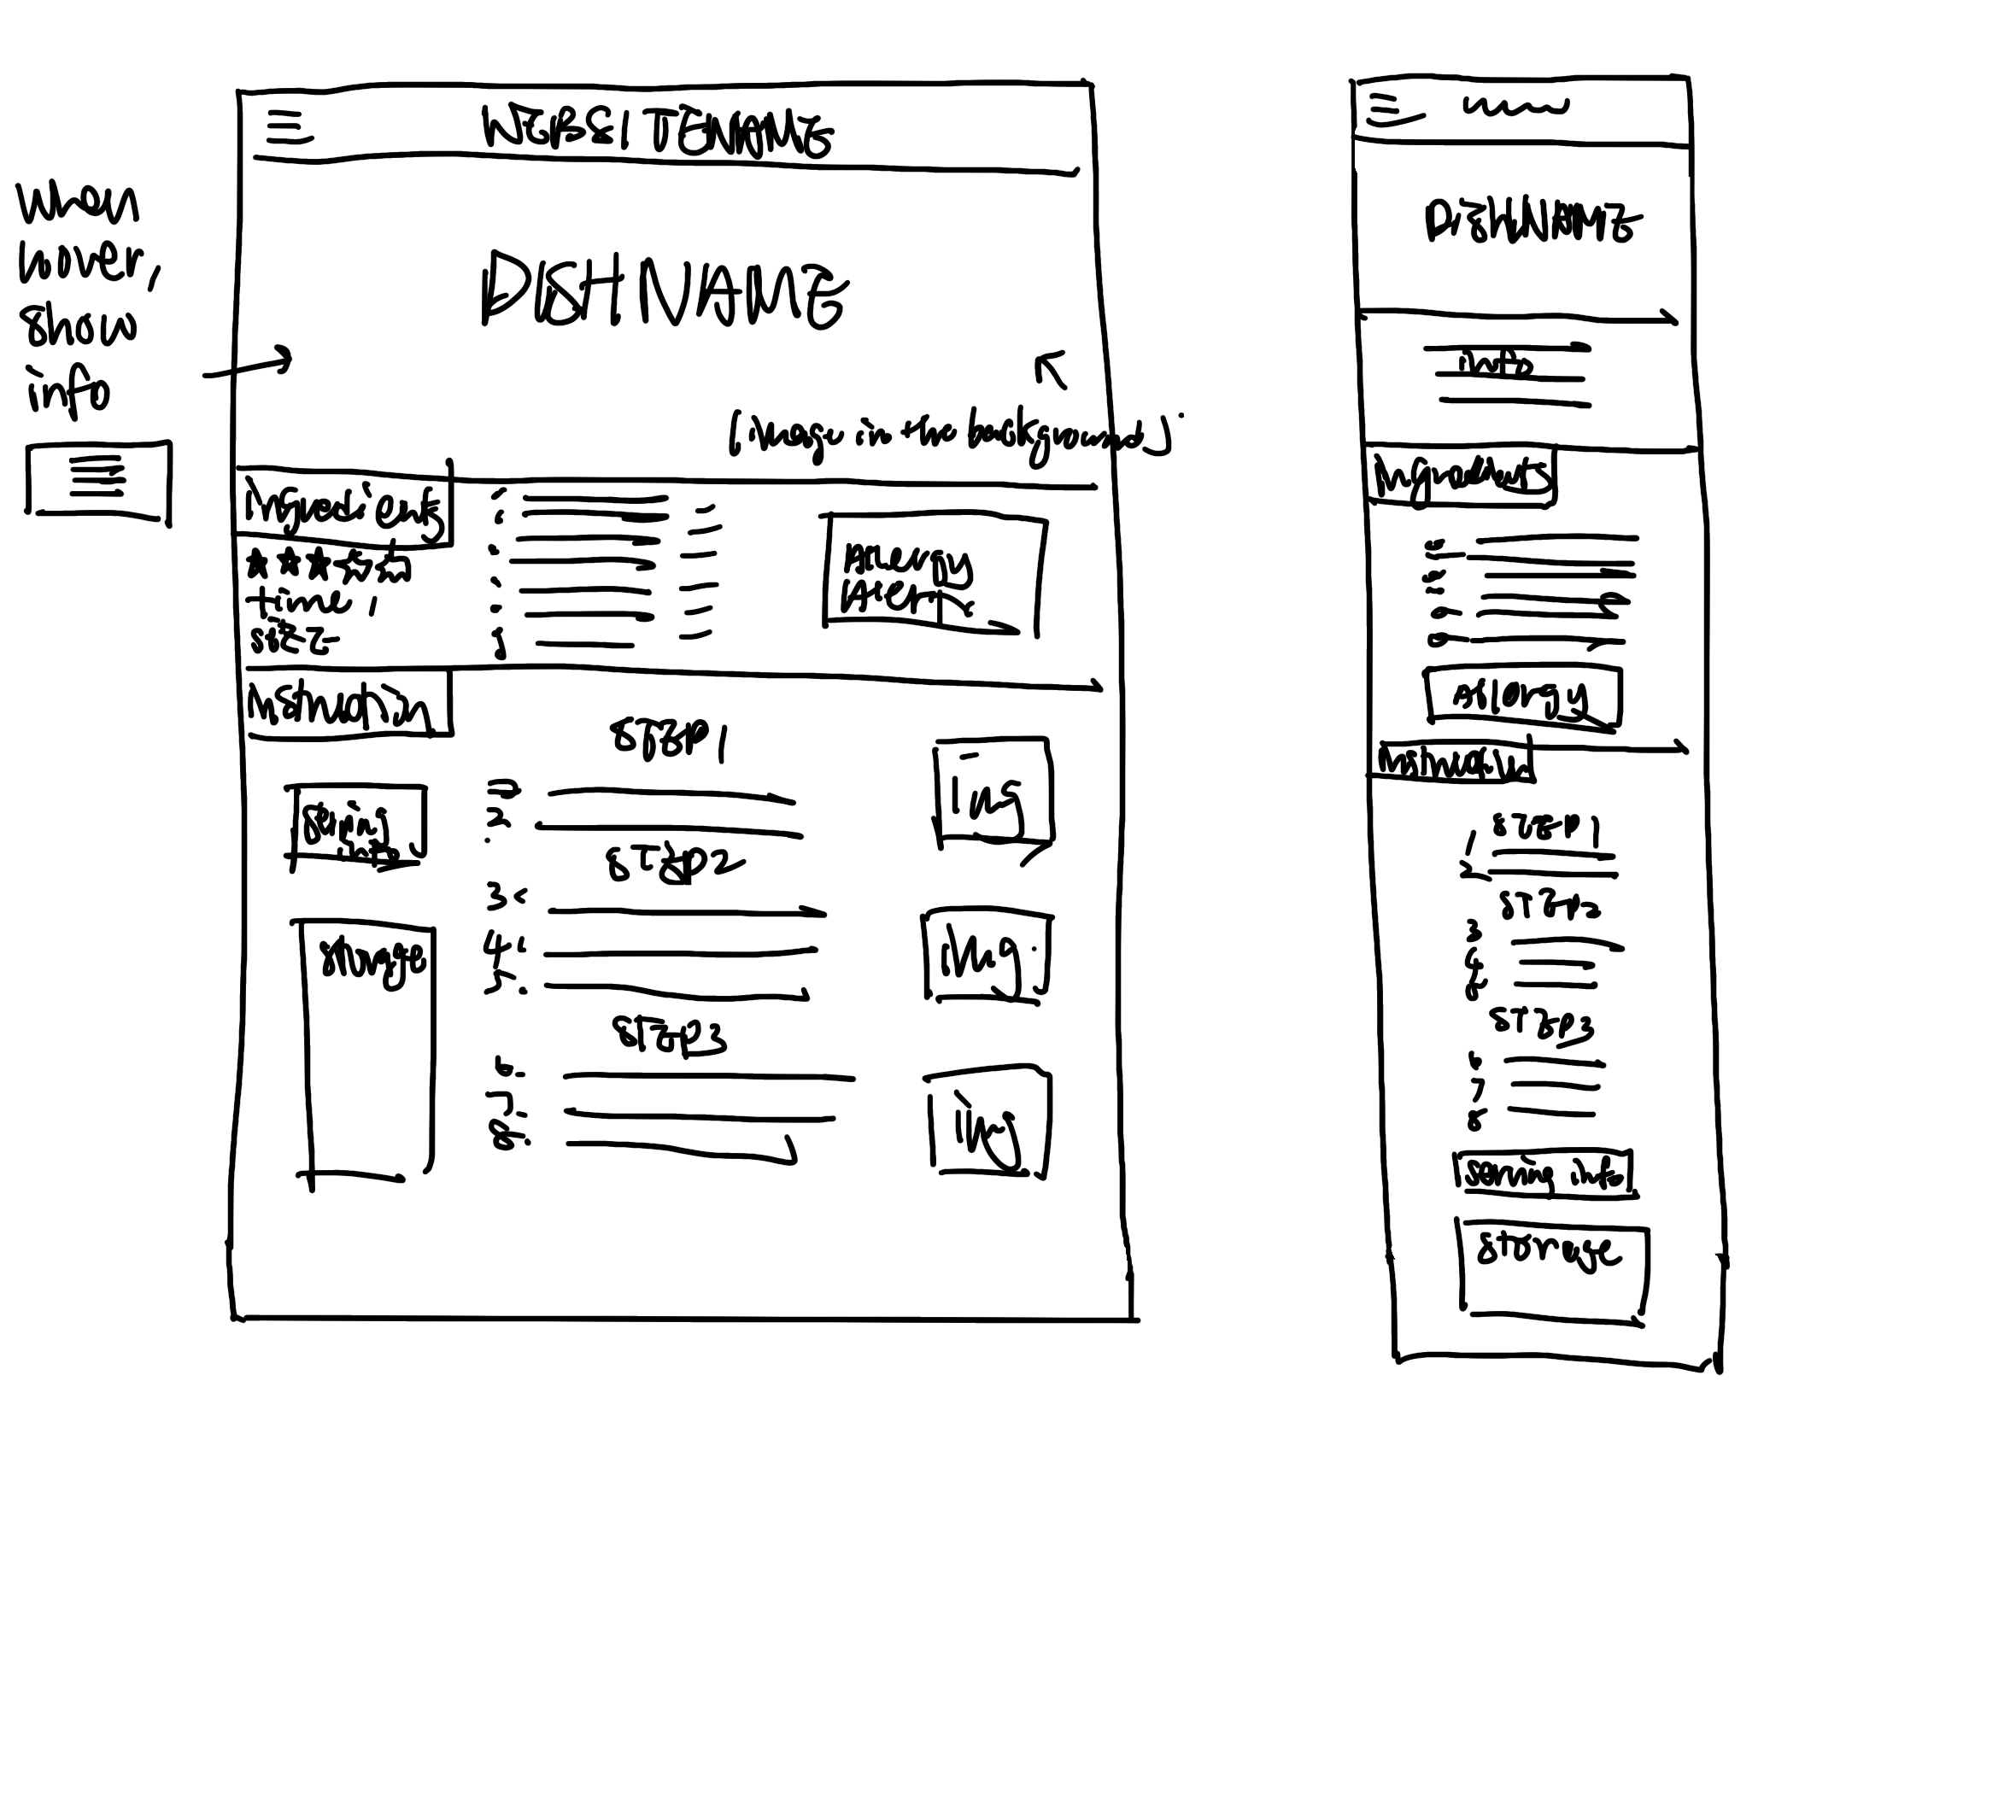 WEBSITENAME
When
hover,
show
info
DISHNAME
image in the background
Ingredients
time
size
Allergy
Alert
Instruction
STEP1
1.
2.
Serving
info
Img
STEP2
3.
4.
5.
storage
Img
STEP3
6.
7.
8.
Img
DISHNAME
info
Ingredients
Allergy
Instruction
STEP1
1.
2.
STEP2
3
4
5
STEP3
6
7
8
Serving info
storage